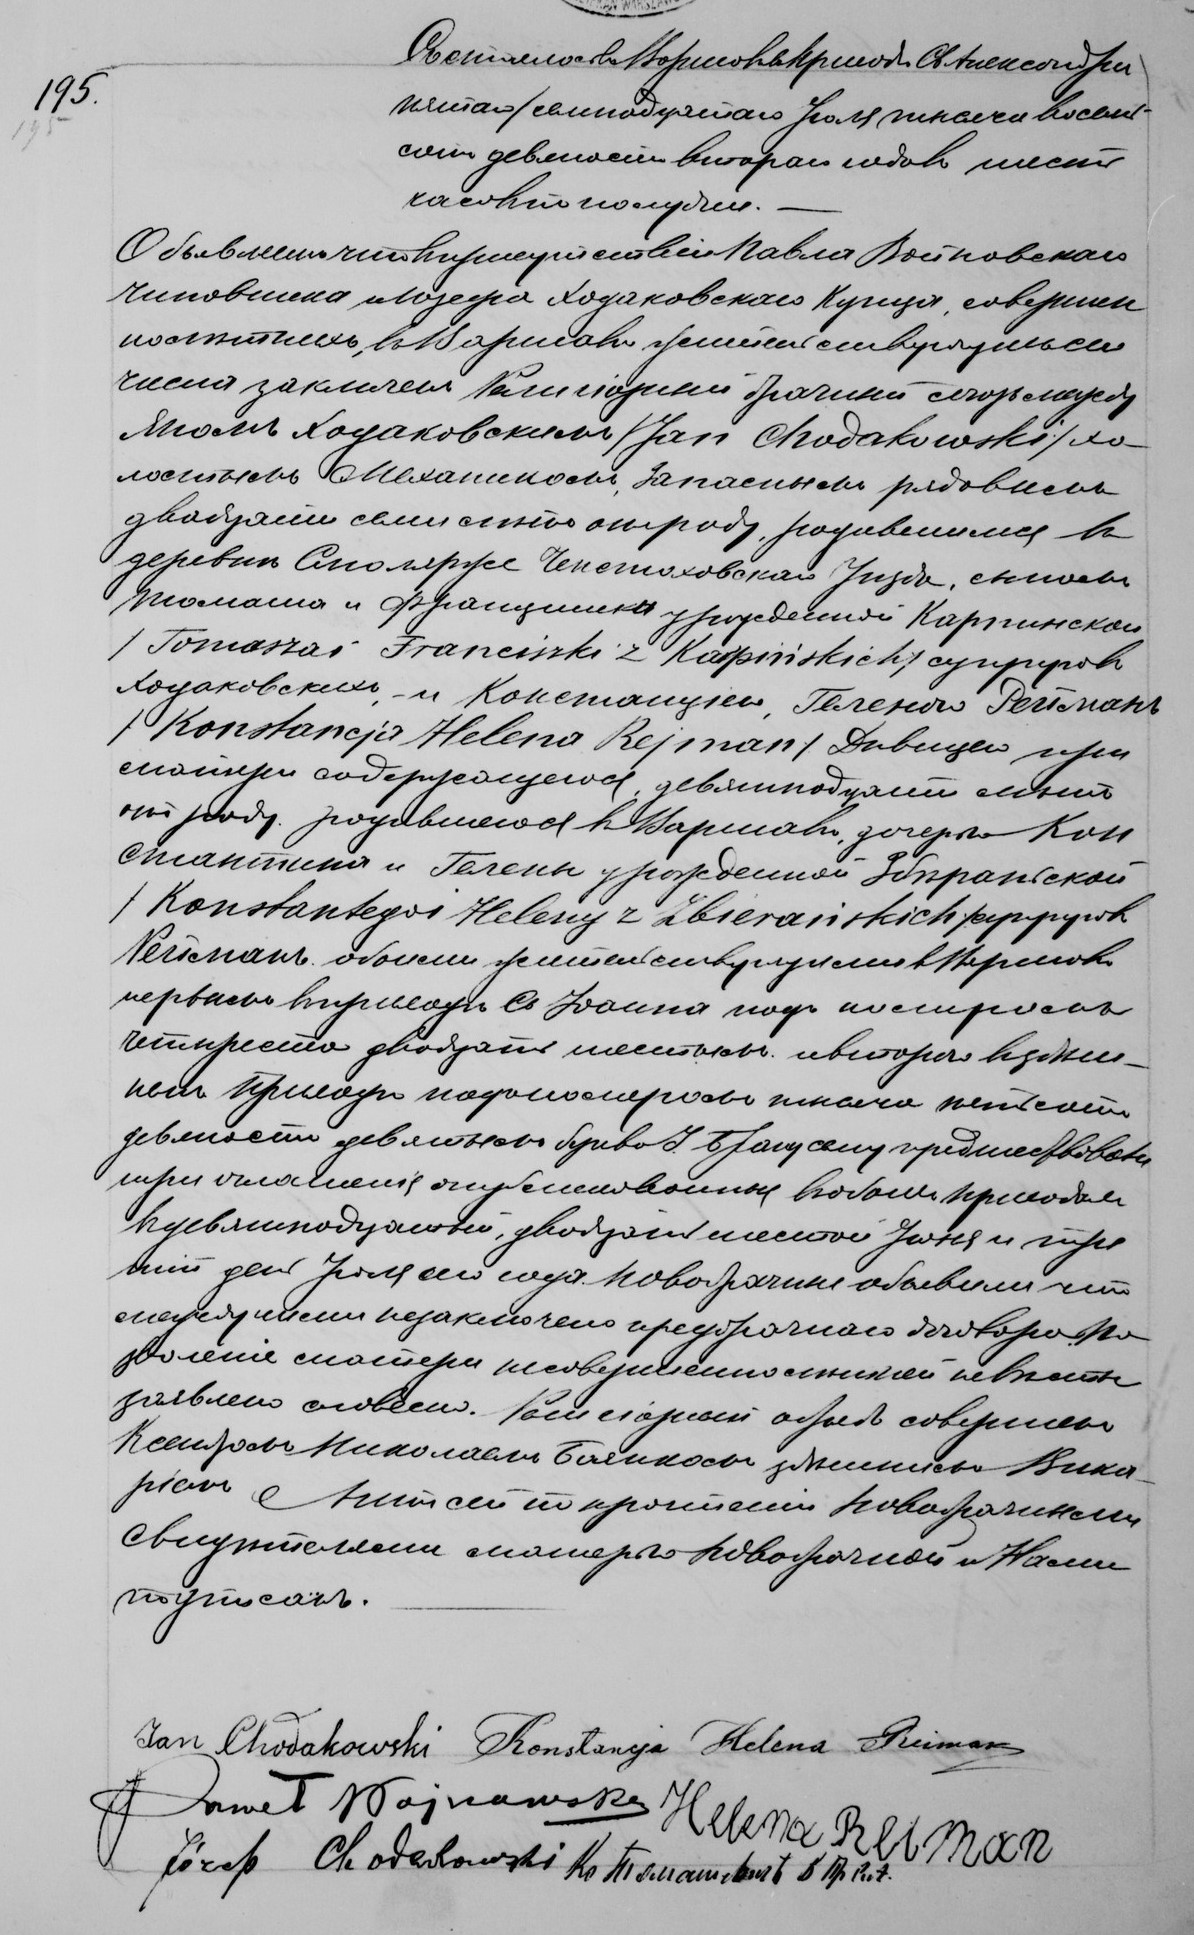 195.
195
Состоялось въ Варшавѣ въ приходѣ Св. Александра
пятаго/семнадцатаго Іюля тысяча восемь-
сотъ девяносто втораго года въ шесть
часовъ по полудни. —
Объявляемъ что въ присутствіи Павла Войновскаго
чиновника и Іозефа Ходаковскаго Купца, совершен
нолѣтнихъ, въ Варшавѣ жительствующихъ сего
числа заключенъ Религіозный брачный союзъ между
Яномъ Ходаковскимъ /Jan Chodakowski/ хо-
лостымъ Механикомъ, запаснымъ рядовымъ
двадцати семи лѣтъ отъ роду, родившимся въ
деревнѣ Ченстоховскаго Уѣзда, сыномъ
Томаша и Францишки урожденной Карпинской
/Tomasza i Franciszki z Karpińskich/ супруговъ
Ходаковскихъ, – и Констанціею, Геленою Рейманъ
/Konstancja Helena Rejman/ Дѣвицею при
матери содержащеюся, девятнадцати лѣтъ
отъ роду, родившеюся въ Варшавѣ, дочерью Кон
стантина и Гелены урожденной Збѣраньской
/Konstantego i Heleny z Zbierańskich/ супруговъ
Рейманъ. обоими жительствующими въ Варшавѣ
первымъ въ приходѣ Св. Іоанна подъ номеромъ
четыреста двадцать шестымъ. и второю въ здѣш-
немъ приходѣ подъ номеромъ тысяча пятьсотъ
девяносто девятымъ буква Браку сему предшествовали
три оглашенія опубликованныя въ обоихъ приходахъ
въ девятнадцатый, двадцать шестой Іюня и тре
тій день Іюля сего года. Новобрачные объявили что
между ними не заключено предбрачнаго договора. По
зволеніе матери несовершеннолѣтней невѣсты
заявлено словесно. Религіозный обрядъ совершенъ
Ксендзомъ Николаемъ здѣшнимъ Вика-
ріемъ Актъ сей по прочтеніи Новобрачными
Свидѣтелями матерью Новобрачной и Нами
подписанъ. —
Jan Chodakowski Konstancja Helena Reiman
Paweł Wojnowski Helena Reiman
Józef Chodakowski